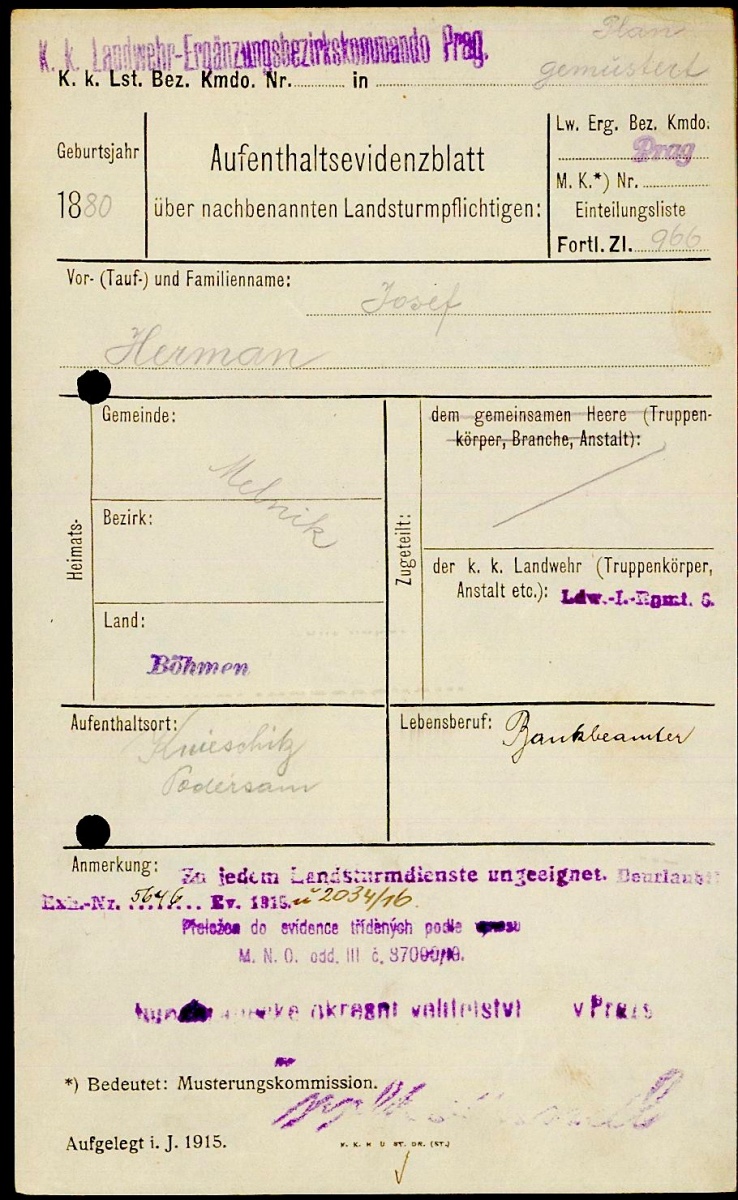 K. k. Landwehr-Ergänzungsbezirkskommando Prag.
Plan
K. k. Lst. Bez. Kmdo. Nr. in gemustert
Geburtsjahr
1880
Aufenthaltsevidenzblatt
über nachbenannten Landsturmpflichtigen:
Lw. Erg. Bez. Kmdo.
Prag
M. K.*) Nr.
Einteilungsliste
Fortl. Zl. 966
Vor- (Tauf-) und Familienname:
Josef
Herman
Heimats-
Gemeinde:
Melnik
Bezirk:
Land:
Böhmen
Zugeteilt:
dem gemeinsamen Heere (Truppen-
körper, Branche, Anstalt):
der k. k. Landwehr (Truppenkörper,
Anstalt etc.): Ldw.-I.-Rgmt. 6.
Aufenthaltsort:
Podersam
Lebensberuf: Bankbeamter
Anmerkung: Zu jedem Landsturmdienste ungeeignet. Beurlaubt
Exh.-Nr. 5646 Ev. 1915. u 2034/16.
Přeložen do evidence tříděných podle
M. N. O. odd. III č. 37000/19.
okresní velitelství v Praze
*) Bedeutet: Musterungskommission.
Aufgelegt i. J. 1915.
K. K. H U ST. DR. (ST.)